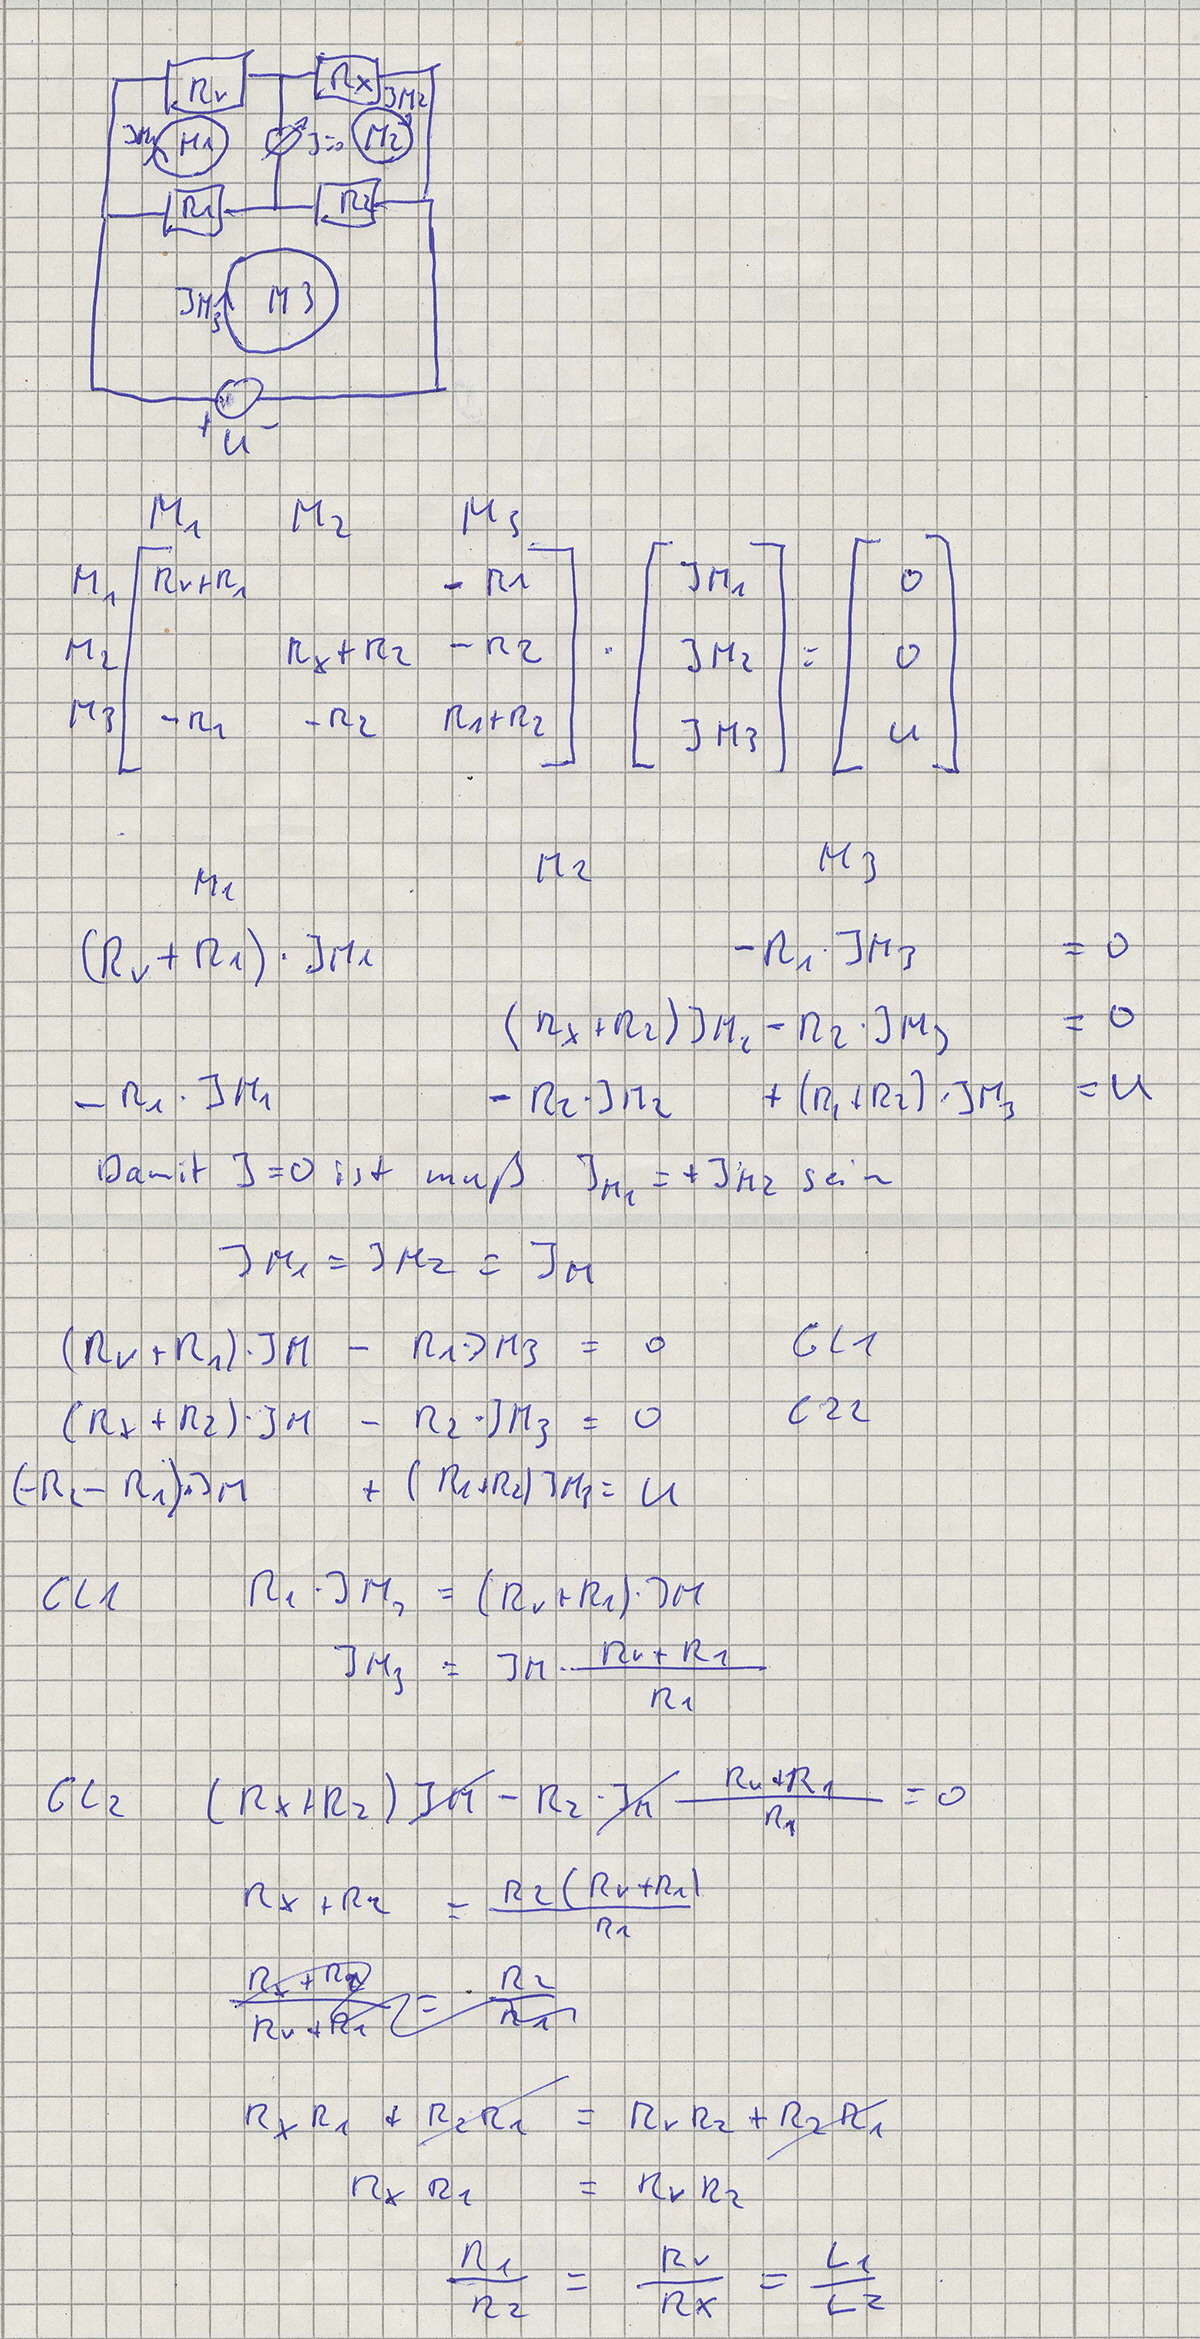 Rv Rx
JM1 M1 J=0 M2 JM2
R1 R2
JM3 M3
+ U -
M1 M2 M3
M1 [ Rv+R1 - R1 ] [ JM1 ] [ 0 ]
M2 [ Rx+R2 - R2 ] · [ JM2 ] = [ 0 ]
M3 [ -R1 -R2 R1+R2 ] [ JM3 ] [ U ]
M1 M2 M3
(Rv+R1)·JM1 -R1·JM3 = 0
(Rx+R2)JM2 - R2·JM3 = 0
-R1·JM1 - R2·JM2 +(R1+R2)·JM3 = U
Damit J=0 ist muß JM1 = +JM2 sein
JM1 = JM2 = JM
(Rv+R1)·JM - R1·JM3 = 0 GL1
(Rx+R2)·JM - R2·JM3 = 0 GL2
(-R2-R1)·JM + (R1+R2)JM3 = U
GL1 R1·JM3 = (Rv+R1)·JM
JM3 = JM · Rv+R1 / R1
GL2 (Rx+R2)JM - R2·JM Rv+R1 / R1 = 0
Rx+R2 = R2(Rv+R1) / R1
Rx+R2 / Rv+R1 = R2 / R1
RxR1 + R2R1 = RvR2 + R2R1
Rx R1 = Rv R2
R1 / R2 = Rv / Rx = L1 / L2